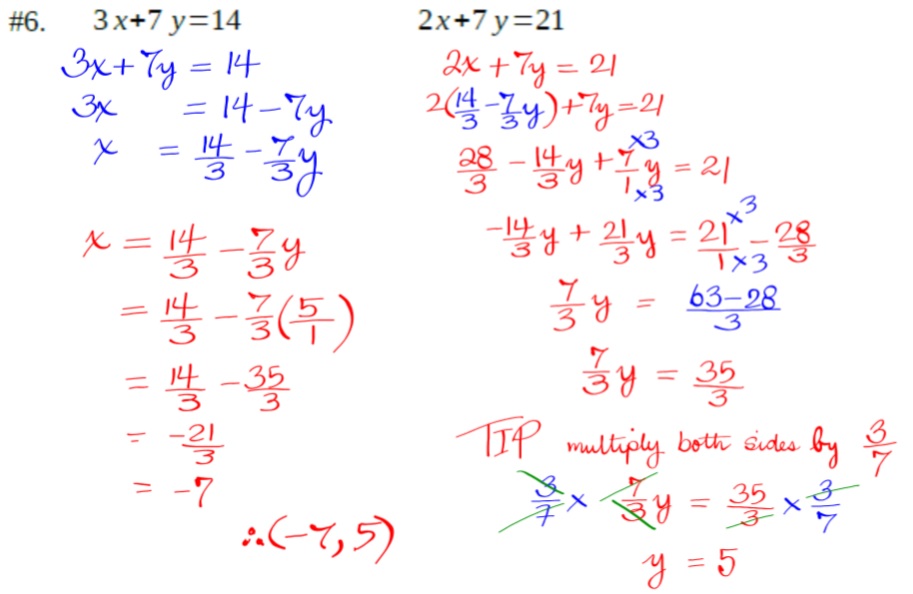 #6. 3x+7y=14
3x + 7y = 14
3x = 14 - 7y
x = 14/3 - 7/3 y
x = 14/3 - 7/3 y
= 14/3 - 7/3 (5/1)
= 14/3 - 35/3
= -21/3
= -7
∴(-7, 5)
2x+7y=21
2x + 7y = 21
2(14/3 - 7/3 y) + 7y = 21
×3
28/3 - 14/3 y + 7/1 y = 21
×3
×3
-14/3 y + 21/3 y = 21/1 - 28/3
×3
7/3 y = 63-28/3
7/3 y = 35/3
TIP multiply both sides by 3/7
3/7 × 7/3 y = 35/3 × 3/7
y = 5